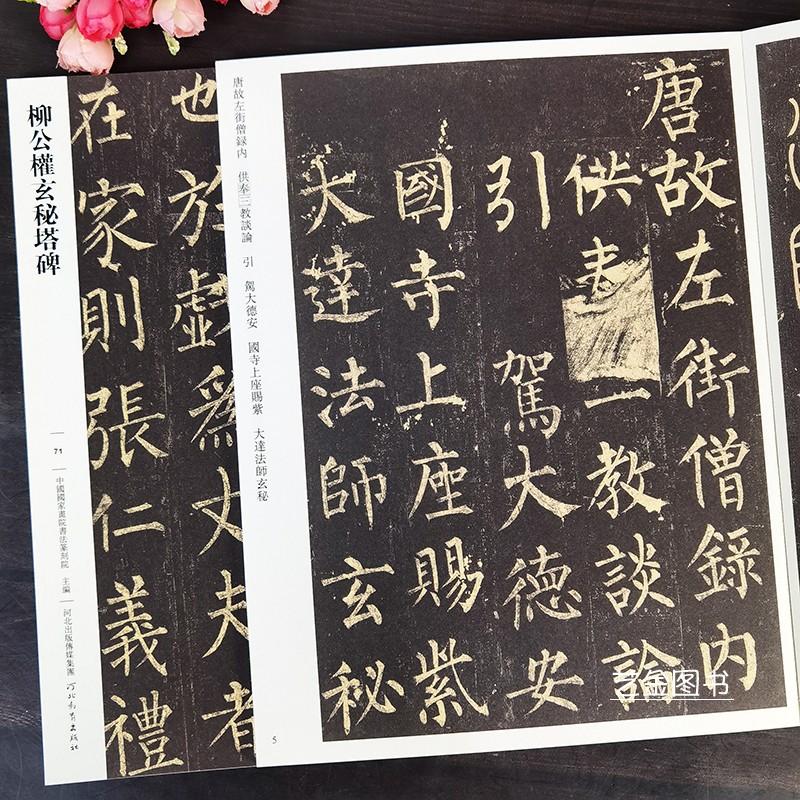 唐故左街僧錄内
供奉三教談論
引
駕大德安
國寺上座賜紫
大達法師玄秘
唐故左街僧録内 供奉三教談論 引 駕大德安 國寺上座賜紫 大達法師玄秘
5
也於戲爲丈夫者
在家則張仁義禮
柳公權玄秘塔碑
71
中國國家畫院書法篆刻院 主編
河北出版傳媒集團 河北教育出版社
艺金图书